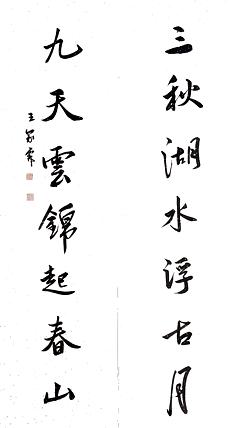 三秋湖水浮古月
九天雲錦起春山